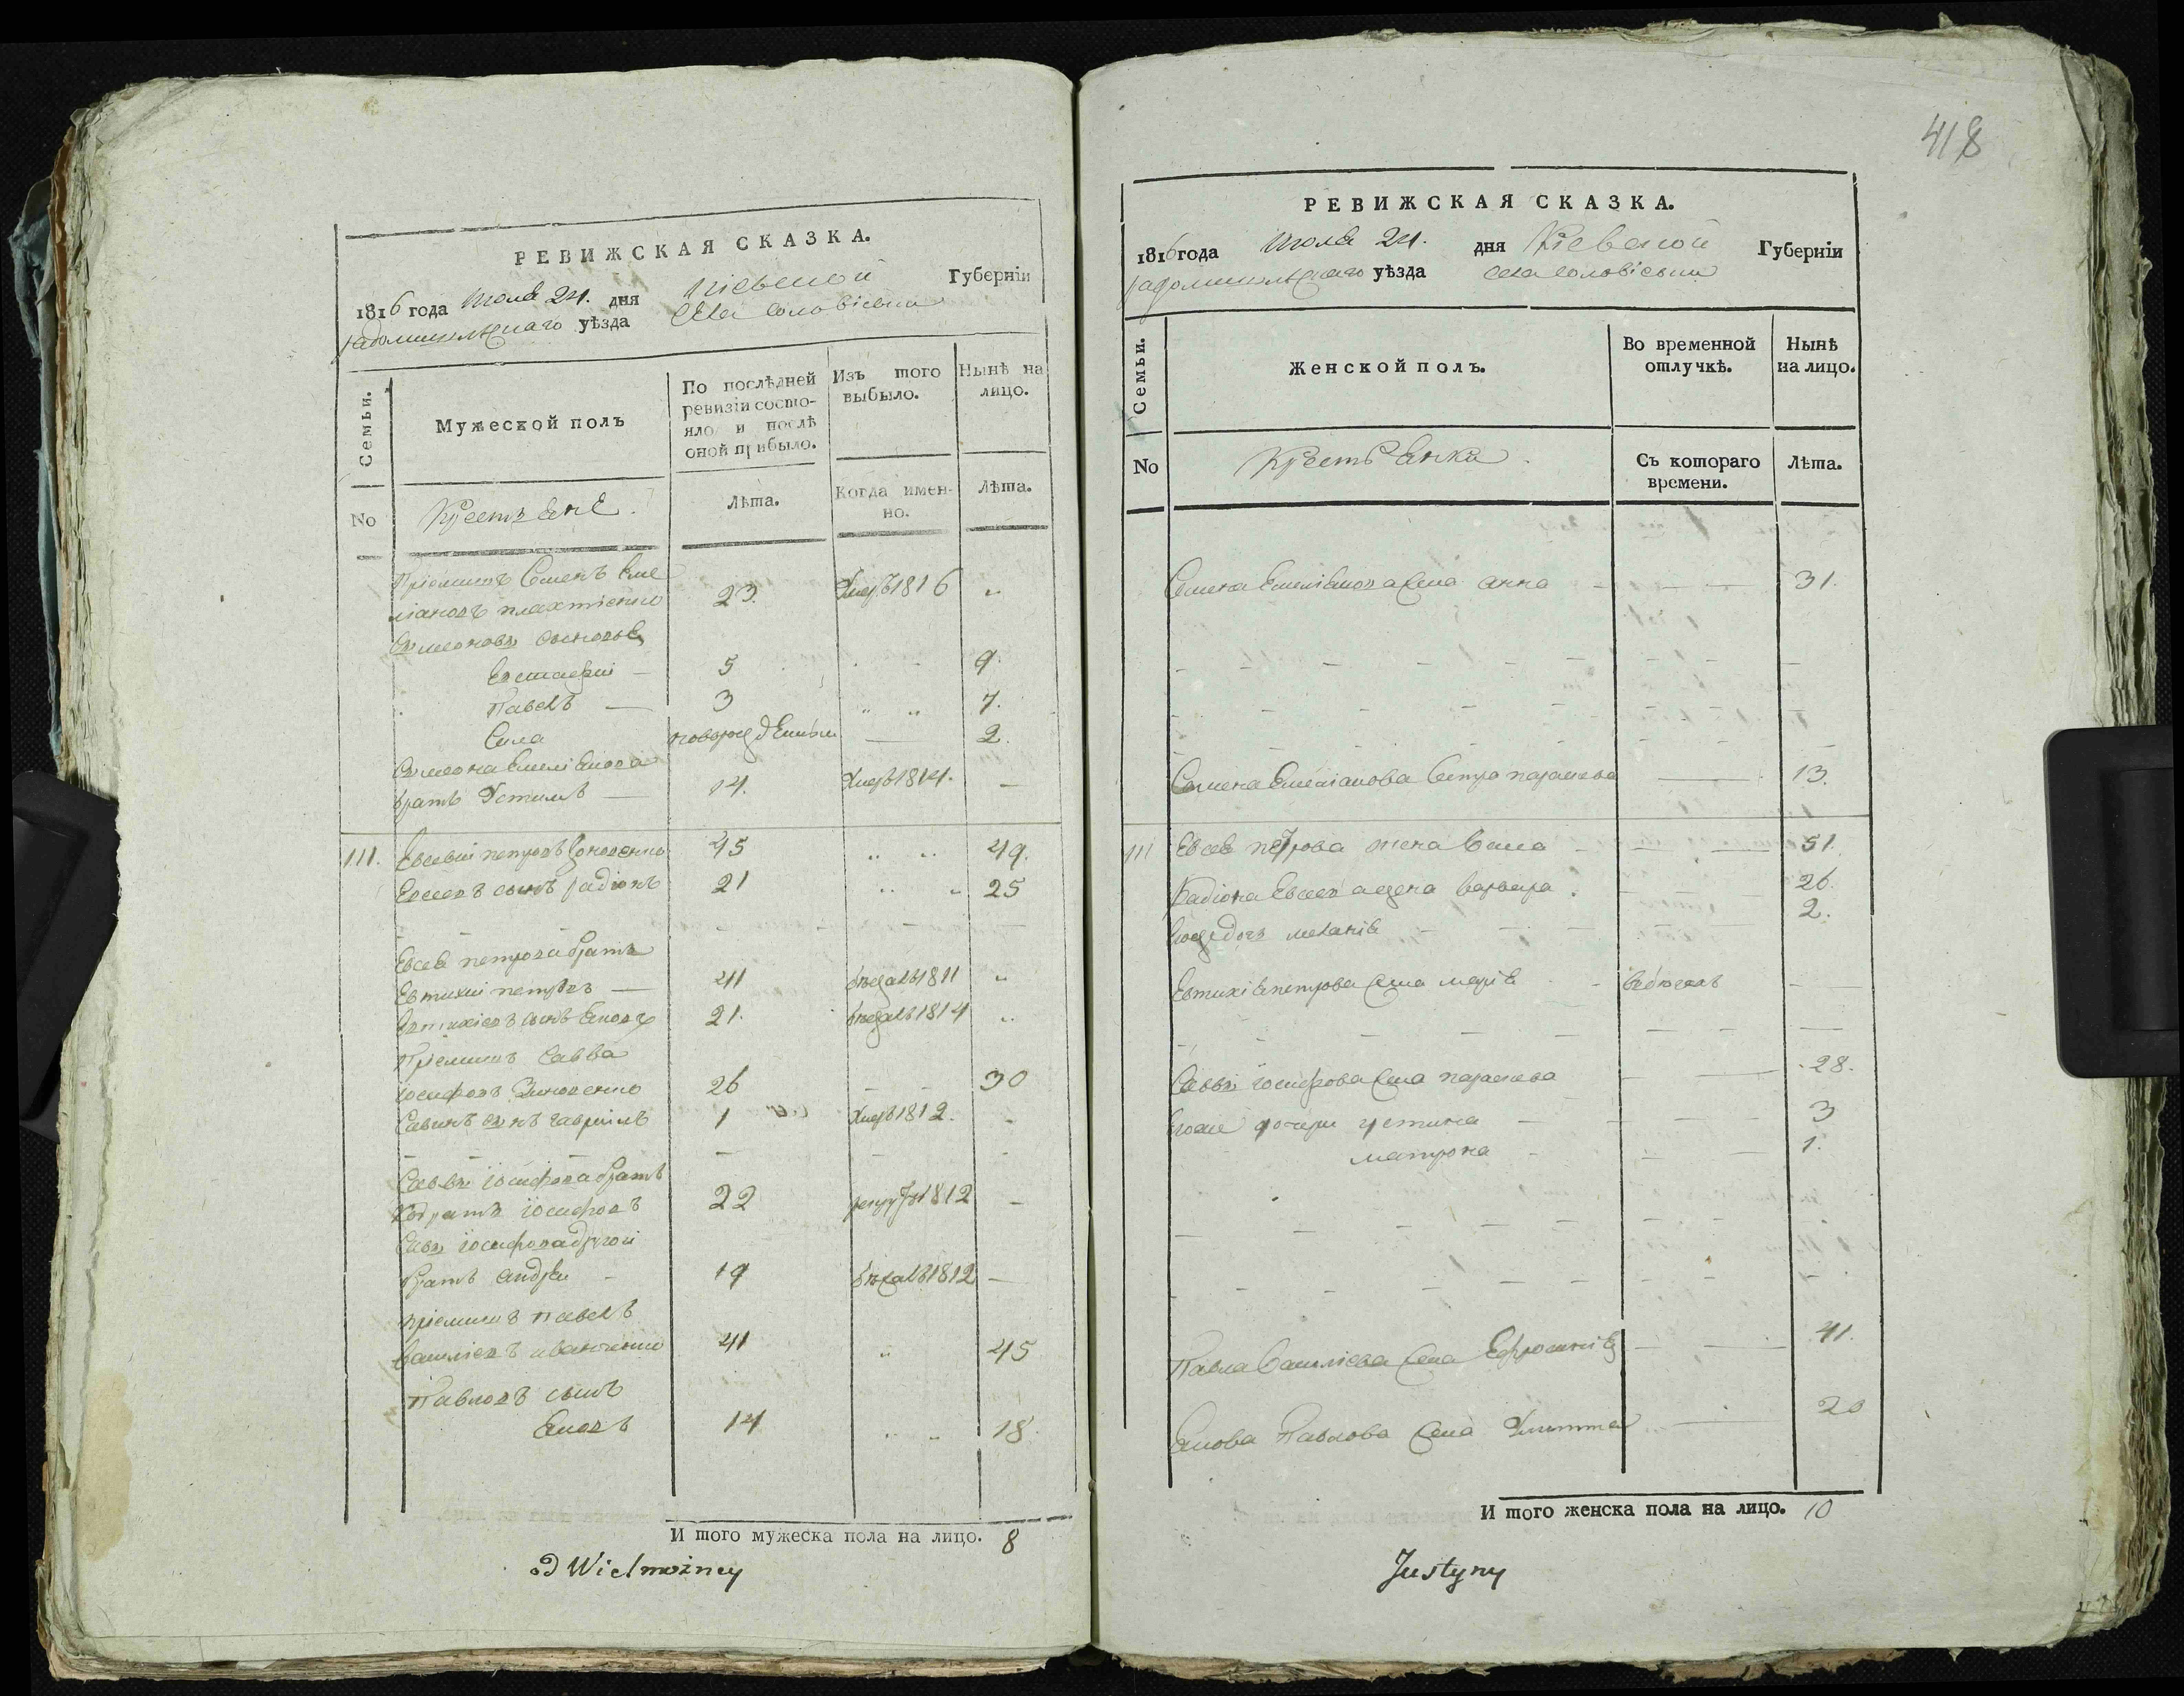 418
РЕВИЖСКАЯ СКАЗКА.
1816 года Июля 24. дня Кіевской Губерніи
радомисльскаго уѣзда села Соловіевки
Семьи.
Мужеской полъ
По послѣдней ревизіи состояло и послѣ оной прибыло.
Изъ того выбыло.
Нынѣ на лицо.
No
Крестьяне.
Лѣта.
Когда именно.
Лѣта.
Пріемишъ Семенъ Еме
ліановъ 23. Умеръ 1816 "
Семеновы сыновья
Евстафій — 5 9.
Павелъ — 3 " " 7.
Сила новорожденный — 2.
Семена Емеліанова
братъ Устимъ — 14. Умеръ 1814. —
111. Евсевій петровъ 45 " " 49.
Евсеевъ сынъ радіонъ 21 " " 25
Евсея петрова братъ
Евтихій петровъ — 41 бежалъ 1811 "
Евтихіевъ сынъ Яковъ 21. бежалъ 1814 "
Пріемишъ Савва
іосифовъ Зиновенко 26 — — 30
Савинъ сынъ гавріилъ 1 Умеръ 1812. -
Саввы іосифова братъ
Кодратъ іосифовъ 22 рекрутъ 1812 —
Савы іосифова другой
братъ андрей - 19 бѣжалъ 1812 —
пріемишъ павелъ
василіевъ иванченко 41 " 45
Павловъ сынъ
Яковъ 14 " " 18.
И того мужеска пола на лицо. 8
od Wielmożney
РЕВИЖСКАЯ СКАЗКА.
1816 года Июля 24. дня Кіевской Губерніи
радомисльскаго уѣзда села Соловіевки
Семьи.
Женской полъ.
Во временной отлучкѣ.
Нынѣ на лицо.
No
Крестьянка.
Съ котораго времени.
Лѣта.
Семена Емеліанова жена анна — 31.
Семена Емеліанова сестра параскева — 13.
111 Евсея петрова жена — 51.
Радіона Евсеева жена варвара — 26.
Еводочь меланія - 2.
Евтихія петрова жена марія - —
Саввы іосифова жена параскева — 28.
Егоже дочери устина — 3
матрона — 1.
Павла Василіева жена Ефросинія — 41.
Якова Павлова жена — 20
И того женска пола на лицо. 10
Justyny